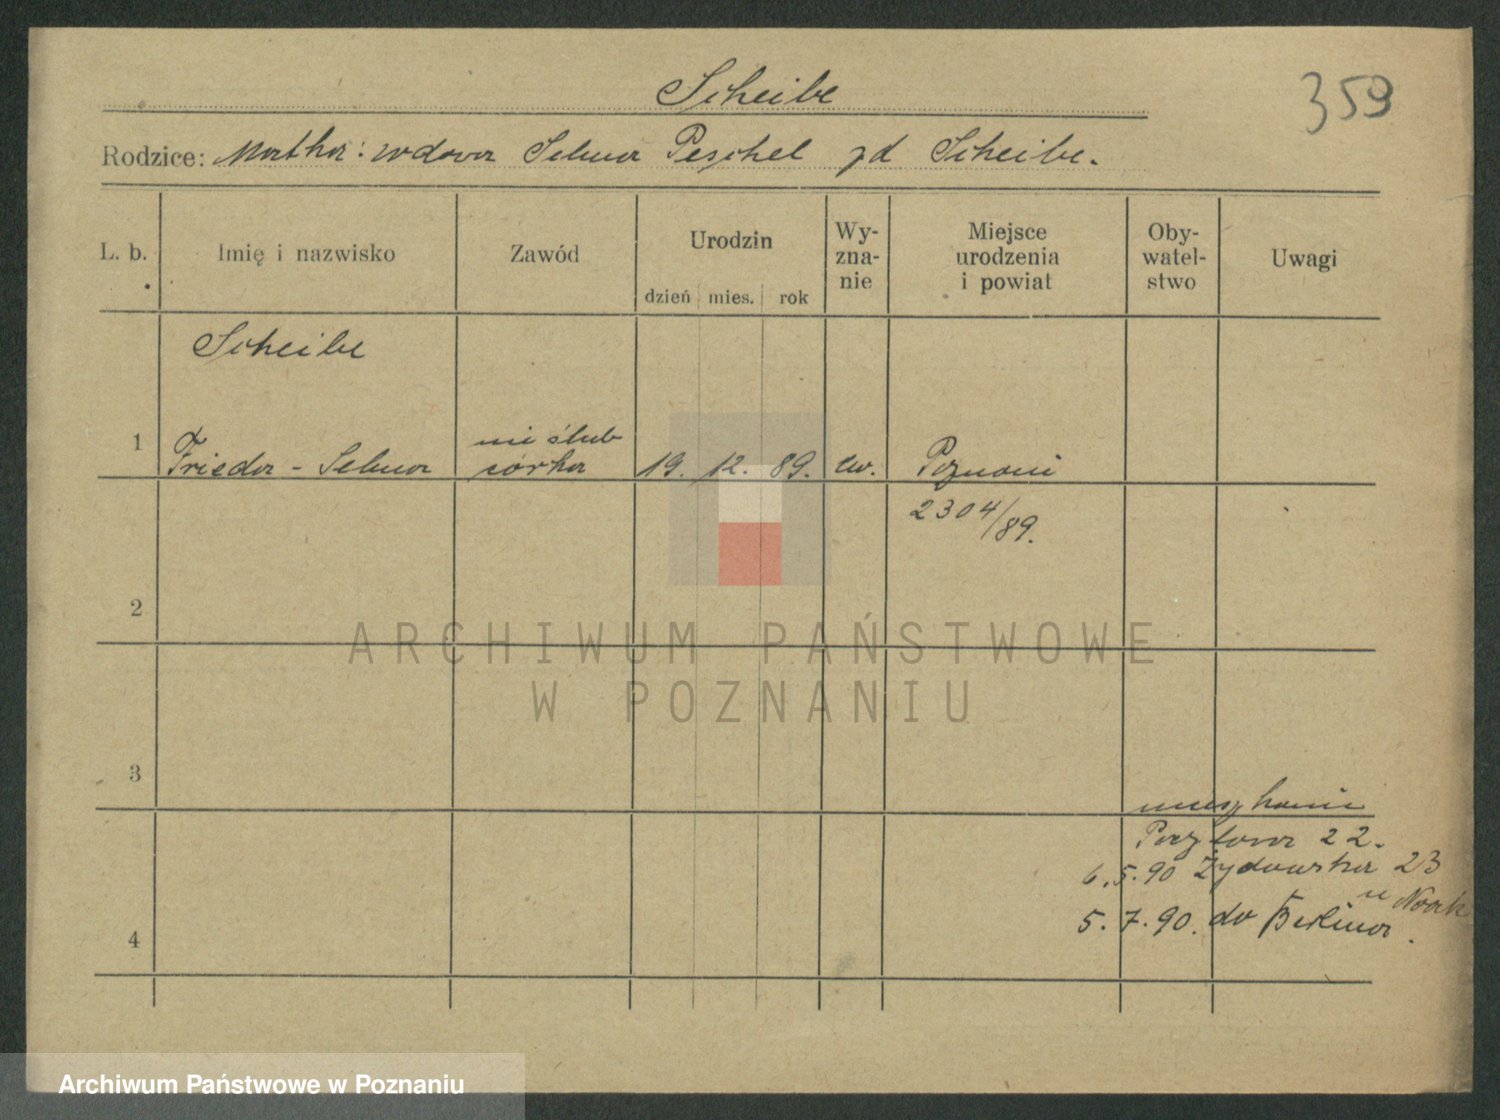 Scheibe
359
Rodzice: Matka: wdowa Selma Peschel zd Scheibe.
L. b.
Imię i nazwisko
Zawód
Urodzin
dzień mies. rok
Wy-
zna-
nie
Miejsce
urodzenia
i powiat
Oby-
watel-
stwo
Uwagi
Scheibe
1 Frieda - Selma nieślub córka 19. 12. 89. ew. Poznani
2304/89.
2
3
mieszkanie
Pocztowa 22.
6.5.90 Żydowska 23
u Noack
5.7.90. do Berlina.
4
ARCHIWUM PAŃSTWOWE
W POZNANIU
Archiwum Państwowe w Poznaniu